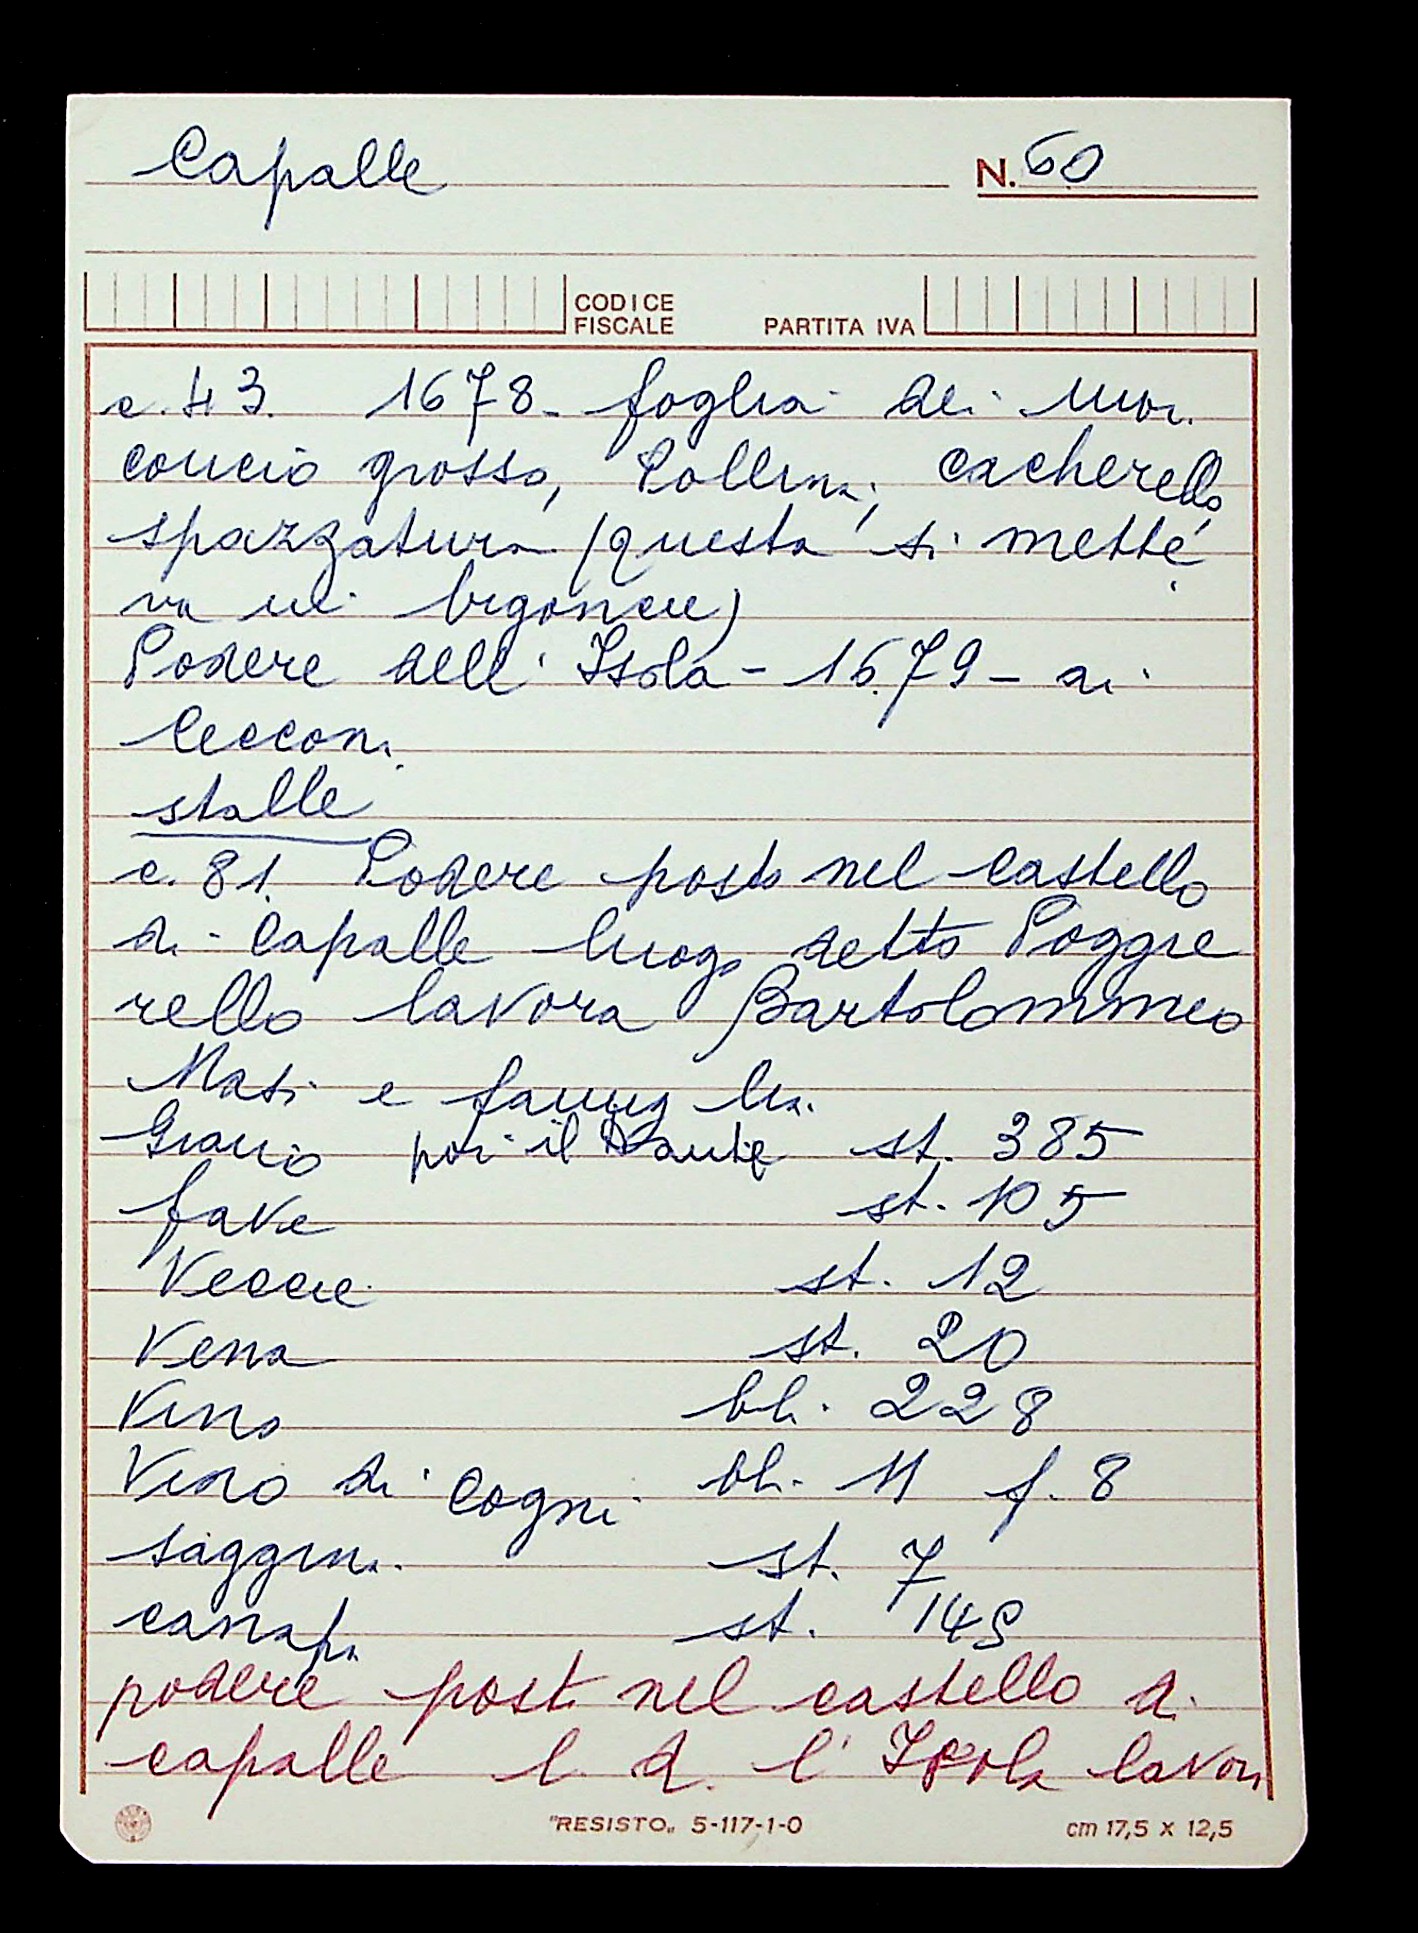 Capalle N. 60
CODICE
FISCALE PARTITA IVA
c. 43. 1678 - foglia dei mori
concio grosso, Pollina, cacherello,
spazzatura (questa si mette
va ne' bigonce)
Podere dell'Isola - 1679 - ai
Cecconi
stalle
c. 81. Podere posto nel castello
di Capalle luogo detto Poggie
rello lavora Bartolommeo
Masi e famiglia
Grano poi il st. 385
fave st. 105
Vecce st. 12
Vena st. 20
Vino bl. 228
Vino di Cogni bl. 11 f. 8
saggina st. 7
canapa st. 145
podere posto nel castello di
capalle l. d. l'Isola lavora
"RESISTO" 5-117-1-0 cm 17,5 x 12,5